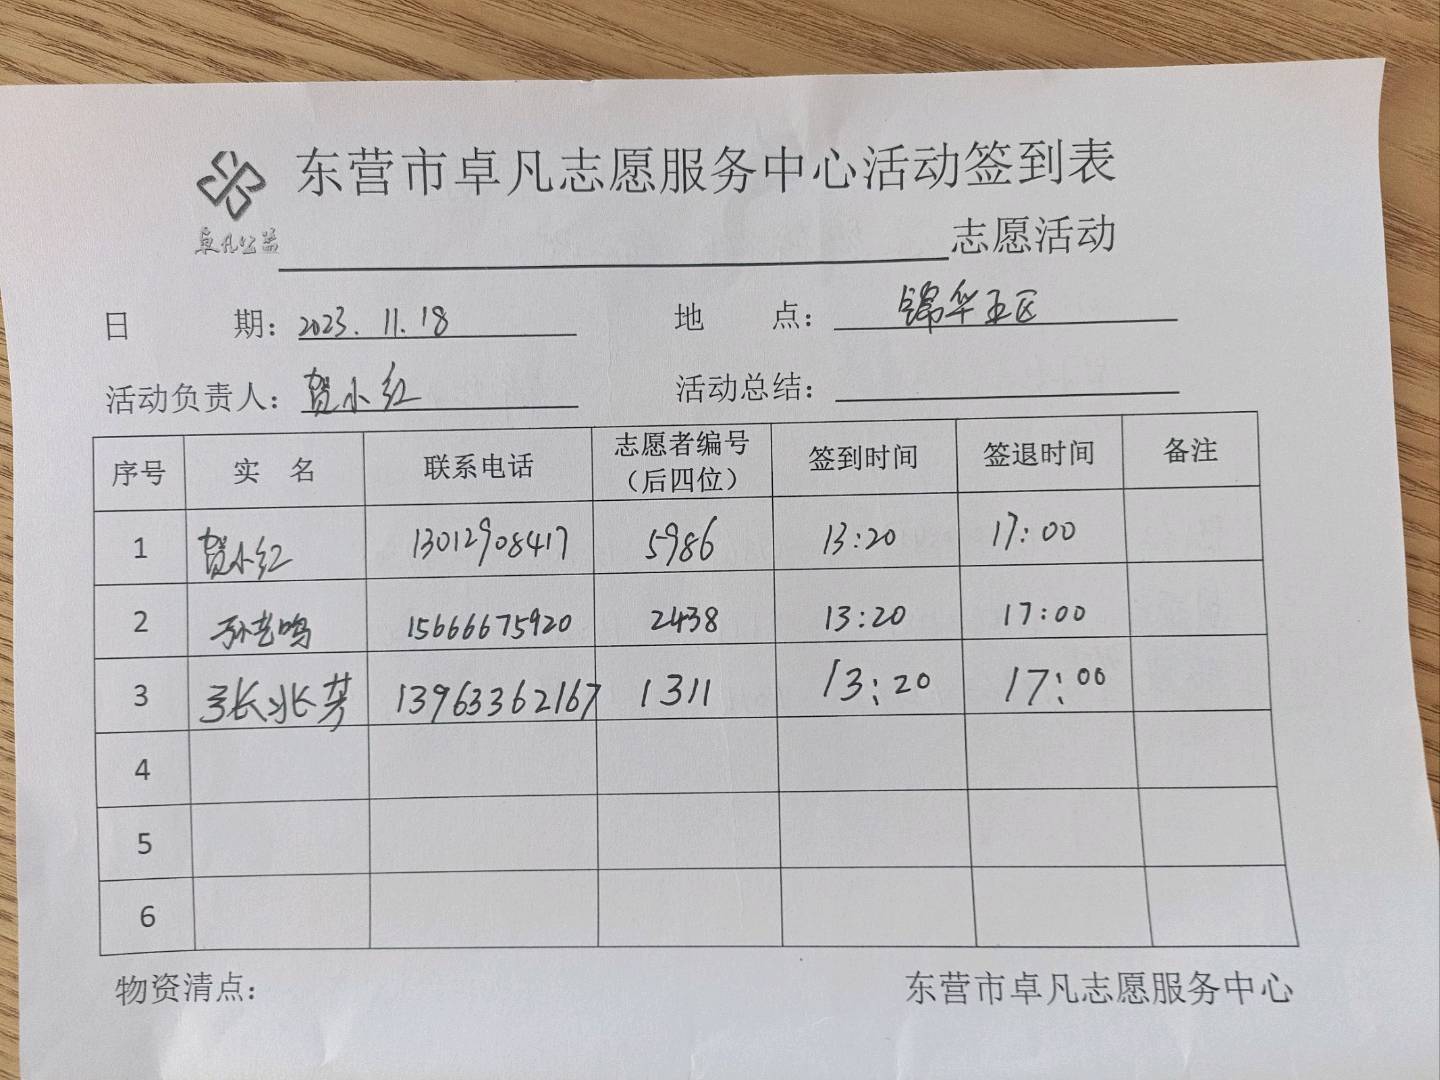 东营市卓凡志愿服务中心活动签到表
卓凡公益
志愿活动
日 期：2023.11.18 地 点：锦华五区
活动负责人：贺小红 活动总结：
序号 实 名 联系电话 志愿者编号（后四位） 签到时间 签退时间 备注
1 贺小红 13012908417 5986 13:20 17:00
2 15666675920 2438 13:20 17:00
3 张兆芳 13963362167 1311 13:20 17:00
4
5
6
物资清点： 东营市卓凡志愿服务中心